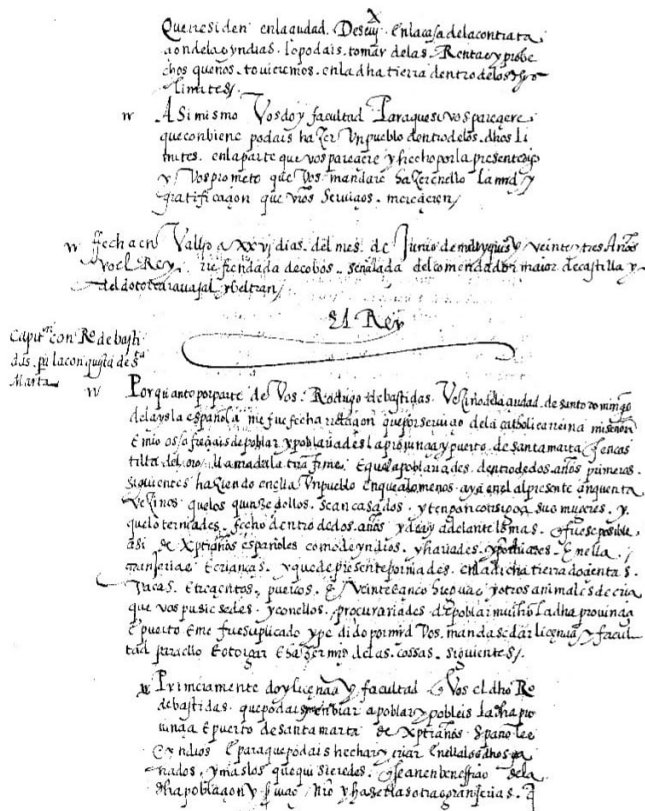 Que residen en la ciudad. De seuja. En la casa de la contrata
aon de la s yndias. lo podais. tomar de las. Rentas y probe
chos que nos. touieremos. en la dha tierra dentro de los dhos
limites.
Asi mismo Vos doy facultad Para que si vos pareçere
que conbiene podais hazer Un pueblo dentro de los. dhos li
mites. en la parte que vos pareçere y hecho por la presente digo
y Vos prometo que Vos mandare hazer en ello la mrd y
gratificaçion que vros Serviçios. mereçieren
ffecha en Vallid a xxvj dias. del mes. de Junio de mill y quis y veinte y tres Años
yo el Rey. refrendada de cobos. señalada del comendador maior de castilla y
del dotor caravajal y beltran
El Rey
Capiton con Ro de basti
das. pa la conquista de sta
Marta
Por quanto por parte de Vos. Rodrigo de bastidas. Vezino de la ciudad. de santo domingo
de la ysla española me fue fecha relaçion que por serviçio de la catholica reina mi señora
E mio os ofreçiais de poblar y poblariades la provinçia y puerto. de santa marta. Ques en cas
tilla del oro. llamada la tierra firme. E que la poblariades. dentro de dos años primeros.
siguientes haziendo en ella Un pueblo en que a lo menos. aya en el al presente çinquenta
vezinos que los quinze dellos. sean casados. y tengan consigo a sus mugeres. y
que lo terniades. fecho dentro de dos. años y de ay adelante lo mas. que fuese posible,
asi de xptianos españoles como de yndios. y hariades. y porniades. En ella.
granjerias E crianças. y que de presente porniades. en la dicha tierra dozientas.
vacas. E trezientos. puercos. E veinte e cinco yeguas y otros animales de cria
que vos pusiesedes. y con ellos. procurariades. de poblar mucho la dha provinçia
E puerto E me fue suplicado y pedido por mrd Vos. mandase dar liçençia y facul
tad para ello E otorgar E hazer mrd de las. cossas. siguientes
Primeramente doy liçençia y facultad A Vos el dho Ro
de bastidas. que podais enbiar a poblar y pobleis la dha pro
uinçia E puerto de santa marta de xptianos Españoles
E yndios E para que podais hechar y criar En ella los dhos ga
nados. y mas los que quisieredes. Que sean en benefiçio de la
dha poblaçion y serviçio nro y hazer las otras granjerias. E